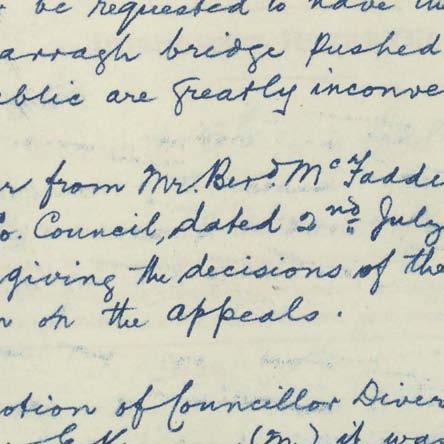 be requested to have
arragh bridge pushed
ublic are greatly inconve
r from Mr. Bern.d McFadde
Co. Council, dated 2nd July
giving the decisions of the
n on the appeals.
otion of Councillor Diver
(Mr.) it was